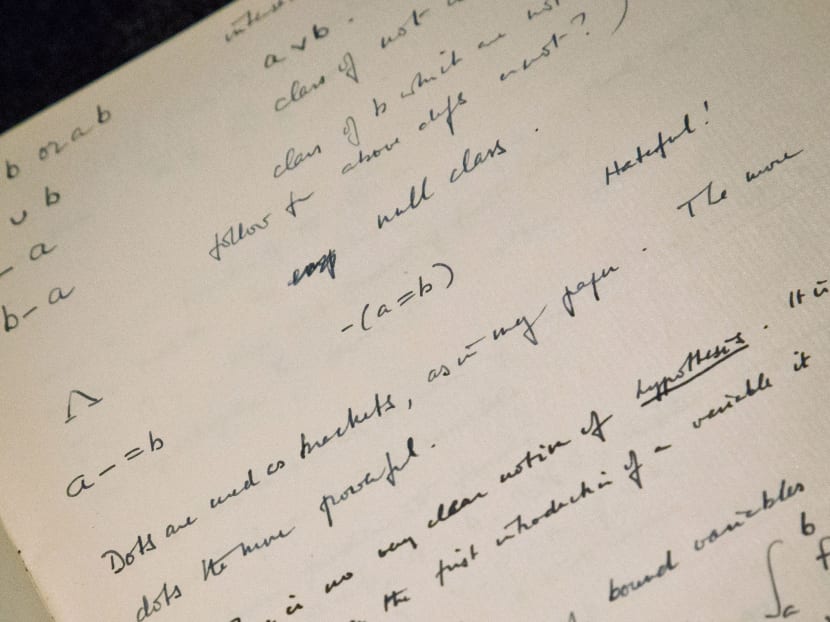 a v b.
b or a b class of not
∪ b class of b which are not
- a follow fr above defs or not?)
b - a null class.
Λ -(a=b) Hateful!
a - = b
Dots are used as brackets, as in my paper. The more
dots the more powerful.
is no very clear notion of hypothesis. It is
the first introduction of a variable it
bound variables
∫ a b f